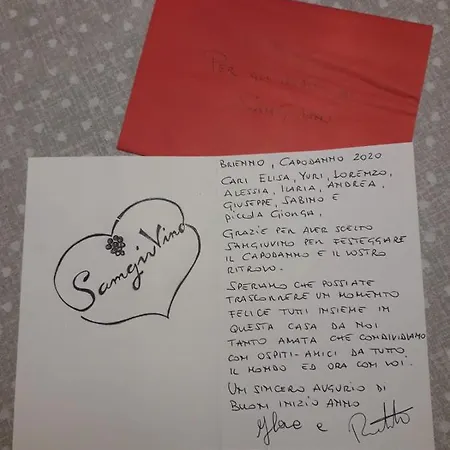 PER
SamgiuVino
BRIENNO, CAPODANNO 2020
CARI ELISA, YURI, LORENZO,
ALESSIA, ILARIA, ANDREA,
GIUSEPPE, SABINO E
PICCOLA GIONGA,
GRAZIE PER AVER SCELTO
SAMGIUVINO PER FESTEGGIARE
IL CAPODANNO E IL VOSTRO
RITROVO.
SPERIAMO CHE POSSIATE
TRASCORRERE UN MOMENTO
FELICE TUTTI INSIEME IN
QUESTA CASA DA NOI
TANTO AMATA CHE CONDIVIDIAMO
CON OSPITI-AMICI DA TUTTO
IL MONDO ED ORA CON VOI.
UN SINCERO AUGURIO DI
BUON INIZIO ANNO
e